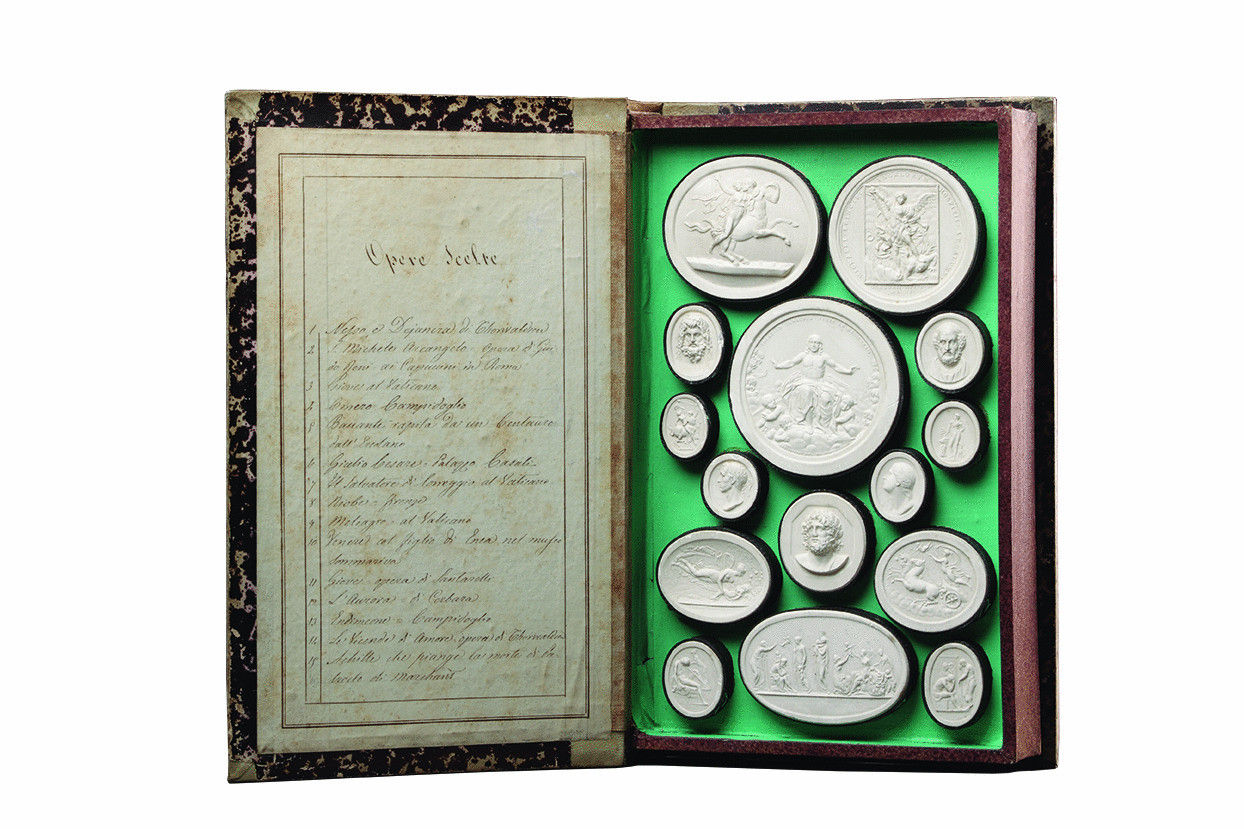 Opere Scelte
1 Nesso e Dejanira di Thorvaldsen
2 S. Michele Arcangelo - opera di Gui-
do Reni ai Capucini in Roma
3 Giove al Vaticano
4 Omero Campidoglio
5 Baccante rapita da un Centauro
dall'
6 Giulio Cesare - Palazzo Casali -
7 Il Salvatore di Correggio al Vaticano
8 Niobe - 
9 Meleagro - al Vaticano
10 Venere col figlio di Enea nel museo
Sommariva
11 Giove opera di Santarelli
12 L'Aurora - di
13 Endimione - Campidoglio
14 Le Vicende d'Amore, opera di Thorvaldsen
15 Achille che piange la morte di Pa-
troclo di Marchant